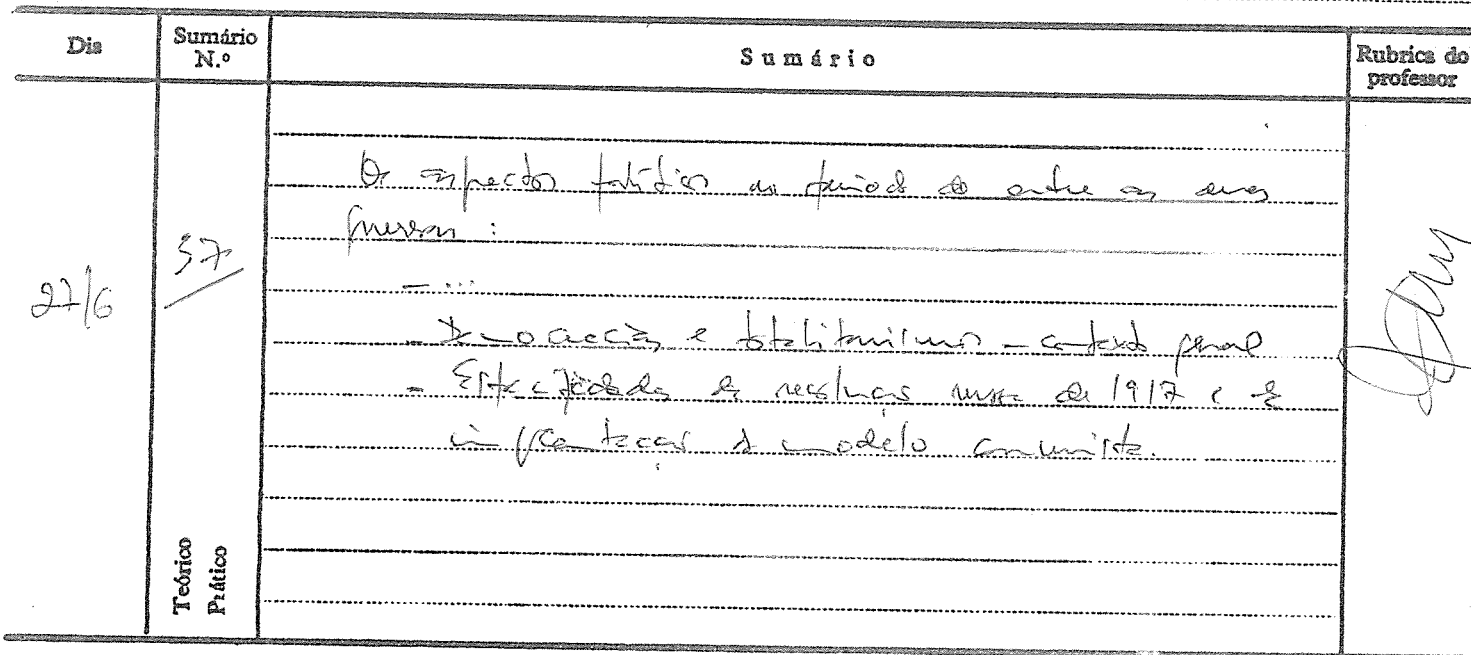 Dia
Sumário
N.º
Sumário
Rubrica do
professor
27/6
37
Os aspectos políticos do período de entre as duas
guerras:
- ...
- Democracias e totalitarismos - contexto geral
- Especificidades da revolução russa de 1917 e da
implantação do modelo comunista.
Teórico
Prático